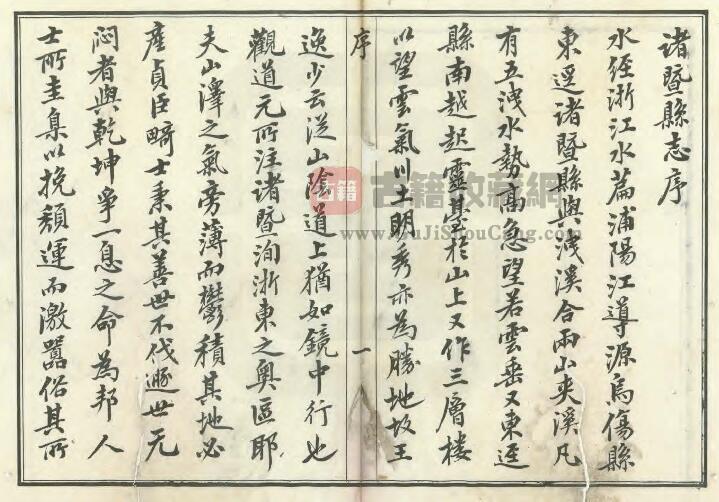 諸暨縣志序
水經浙江水篇浦陽江導源烏傷縣
東逕諸暨縣與洩溪合兩山夾溪凡
有五洩水勢高急望若雲垂又東逕
縣南越起靈臺於山上又作三層樓
以望雲氣川土明秀亦為勝地故王
序
一
逸少云從山陰道上猶如鏡中行也
觀道元所注諸暨洵浙東之奧區耶
夫山澤之氣旁薄而鬱積其地必
產貞臣畸士秉其善世不伐遯世无
悶者與乾坤爭一息之命為邦人
士所圭臬以挽頹運而激囂俗其所
古籍
古籍收藏網
www.GuJiShouCang.com